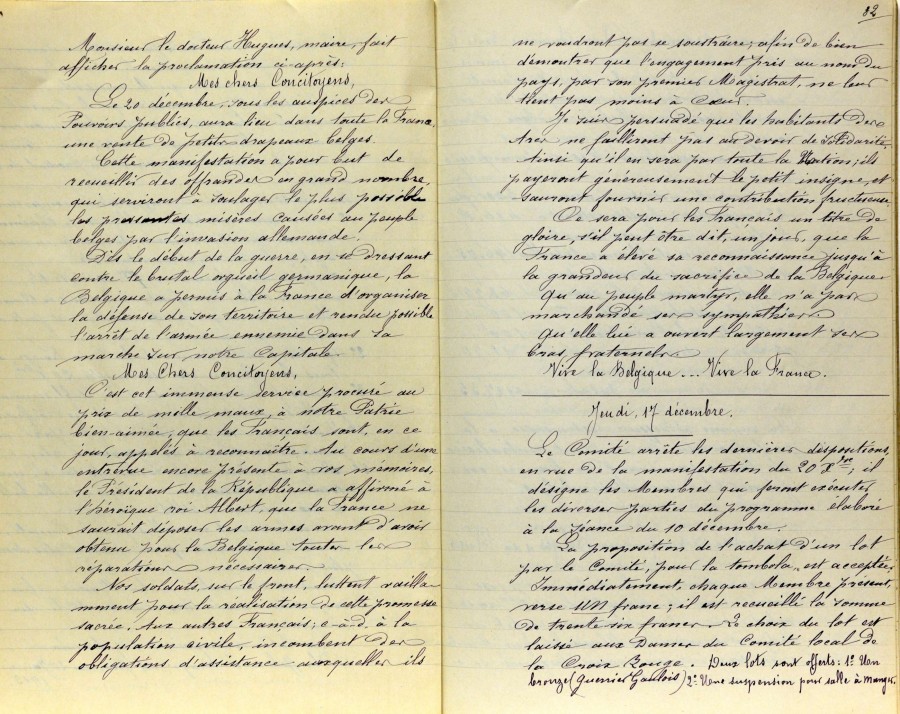 Monsieur le docteur Hugues, maire, fait
afficher la proclamation ci-après:
Mes chers Concitoyens,
Le 20 décembre, sous les auspices des
Pouvoirs publics, aura lieu dans toute la France
une vente de petits drapeaux belges.
Cette manifestation a pour but de
recueillir des offrandes en grand nombre,
qui serviront à soulager le plus possible
les pressantes misères causées au peuple
belges par l'invasion allemande.
Dès le début de la guerre, en se dressant
contre le brutal orgueil germanique, la
Belgique a permis à la France d'organiser
la défense de son territoire et rendu possible
l'arrêt de l'armée ennemie dans sa
marche sur notre Capitale.
Mes Chers Concitoyens,
C'est cet immense service procuré au
prix de mille maux, à notre Patrie
bien-aimée, que les Français sont, en ce
jour, appelés à reconnaître. Au cours d'une
entrevue encore présente à vos mémoires,
le Président de la République a affirmé à
l'héroïque roi Albert, que la France ne
saurait déposer les armes avant d'avoir
obtenu pour la Belgique toutes les
réparations nécessaires.
Nos soldats, sur le front, luttent vailla-
mment pour la réalisation de cette promesse
sacrée. Aux autres Français; c-à-d. à la
population civile, incombent des
obligations d'assistance auxquelles ils
82
ne voudront pas se soustraire; afin de bien
démontrer que l'engagement pris au nom du
pays, par son premier Magistrat, ne leur
tient pas moins à Cœur.
Je suis persuadé que les habitants des
Arcs ne failliront pas au devoir de Solidarité.
Ainsi qu'il en sera par toute la Nation; ils
payeront généreusement le petit insigne, et
sauront fournir une contribution fructueuse.
Ce sera pour les Français un titre de
gloire, s'il peut être dit, un jour, que la
France a élevé sa reconnaissance jusqu'à
la grandeur du sacrifice de la Belgique
Qu'au peuple martyr, elle n'a pas
marchandé ses sympathies
Qu'elle lui a ouvert largement ses
bras fraternels
Vive la Belgique... Vive la France.
Jeudi, 17 décembre.
Le Comité arrête les dernières dispositions,
en vue de la manifestation du 20 Xbre; il
désigne les Membres qui feront exécuter
les diverses parties du programme élaboré
à la séance du 10 décembre.
La proposition de l'achat d'un lot
par le Comité, pour la tombola, est acceptée;
Immédiatement, chaque Membre présent,
verse UN franc; il est recueilli la somme
de trente six francs. Le choix du lot est
laissé aux Dames du Comité local de
la Croix Rouge. Deux lots sont offerts: 1º Un
bronze (Guerrier Gaulois) 2º Une suspension pour salle à manger.